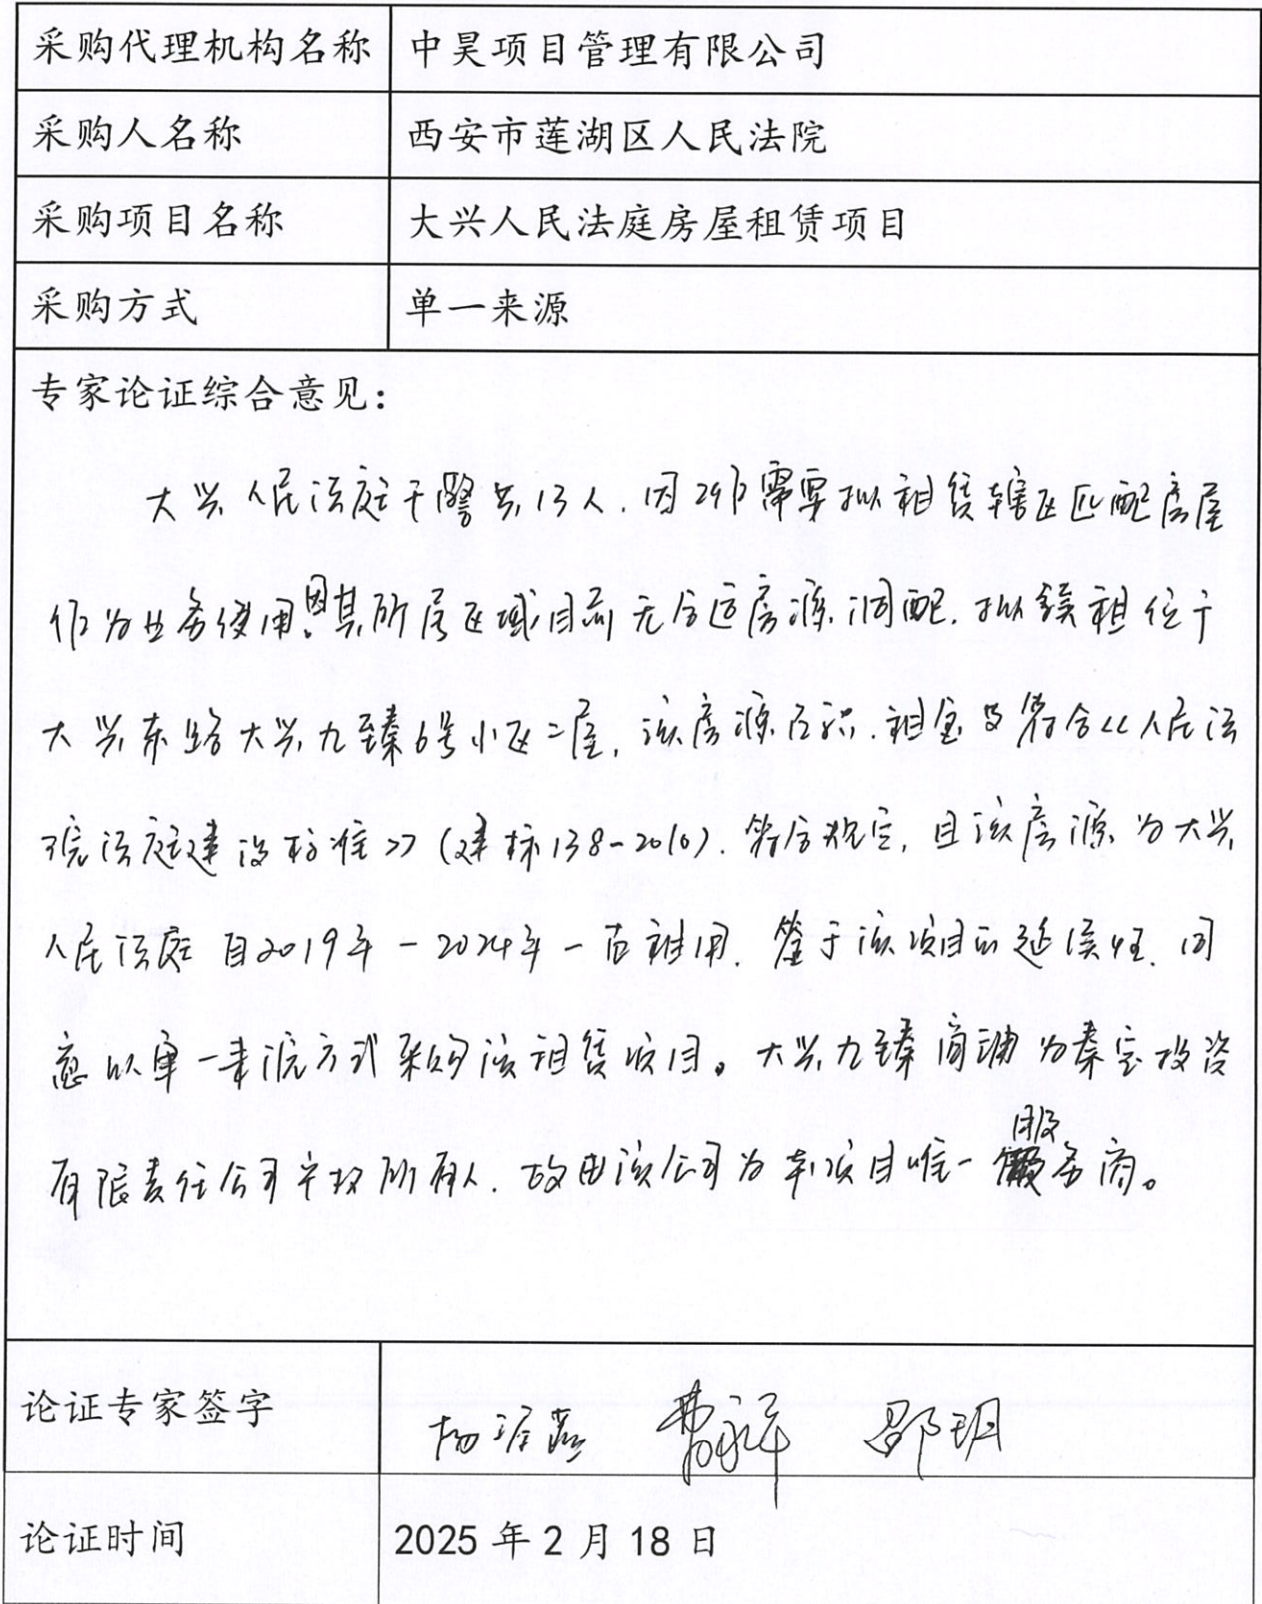 采购代理机构名称 中昊项目管理有限公司
采购人名称 西安市莲湖区人民法院
采购项目名称 大兴人民法庭房屋租赁项目
采购方式 单一来源
专家论证综合意见：
大兴人民法庭干警共13人，因工作需要拟租赁辖区匹配房屋
作为业务使用，因其所属区域目前无合适房源调配，拟续租位于
大兴东路大兴九臻6号小区二层，该房源面积、租金均符合《人民法
院法庭建设标准》（建标138-2010）。符合规定，且该房源为大兴
人民法庭自2019年-2024年一直租用，鉴于该项目的延续性，同
意以单一来源方式采购该租赁项目。大兴九臻商铺为秦宝投资
有限责任公司产权所有人，故由该公司为本项目唯一服务商。
论证专家签字 邵玥
论证时间 2025年2月18日